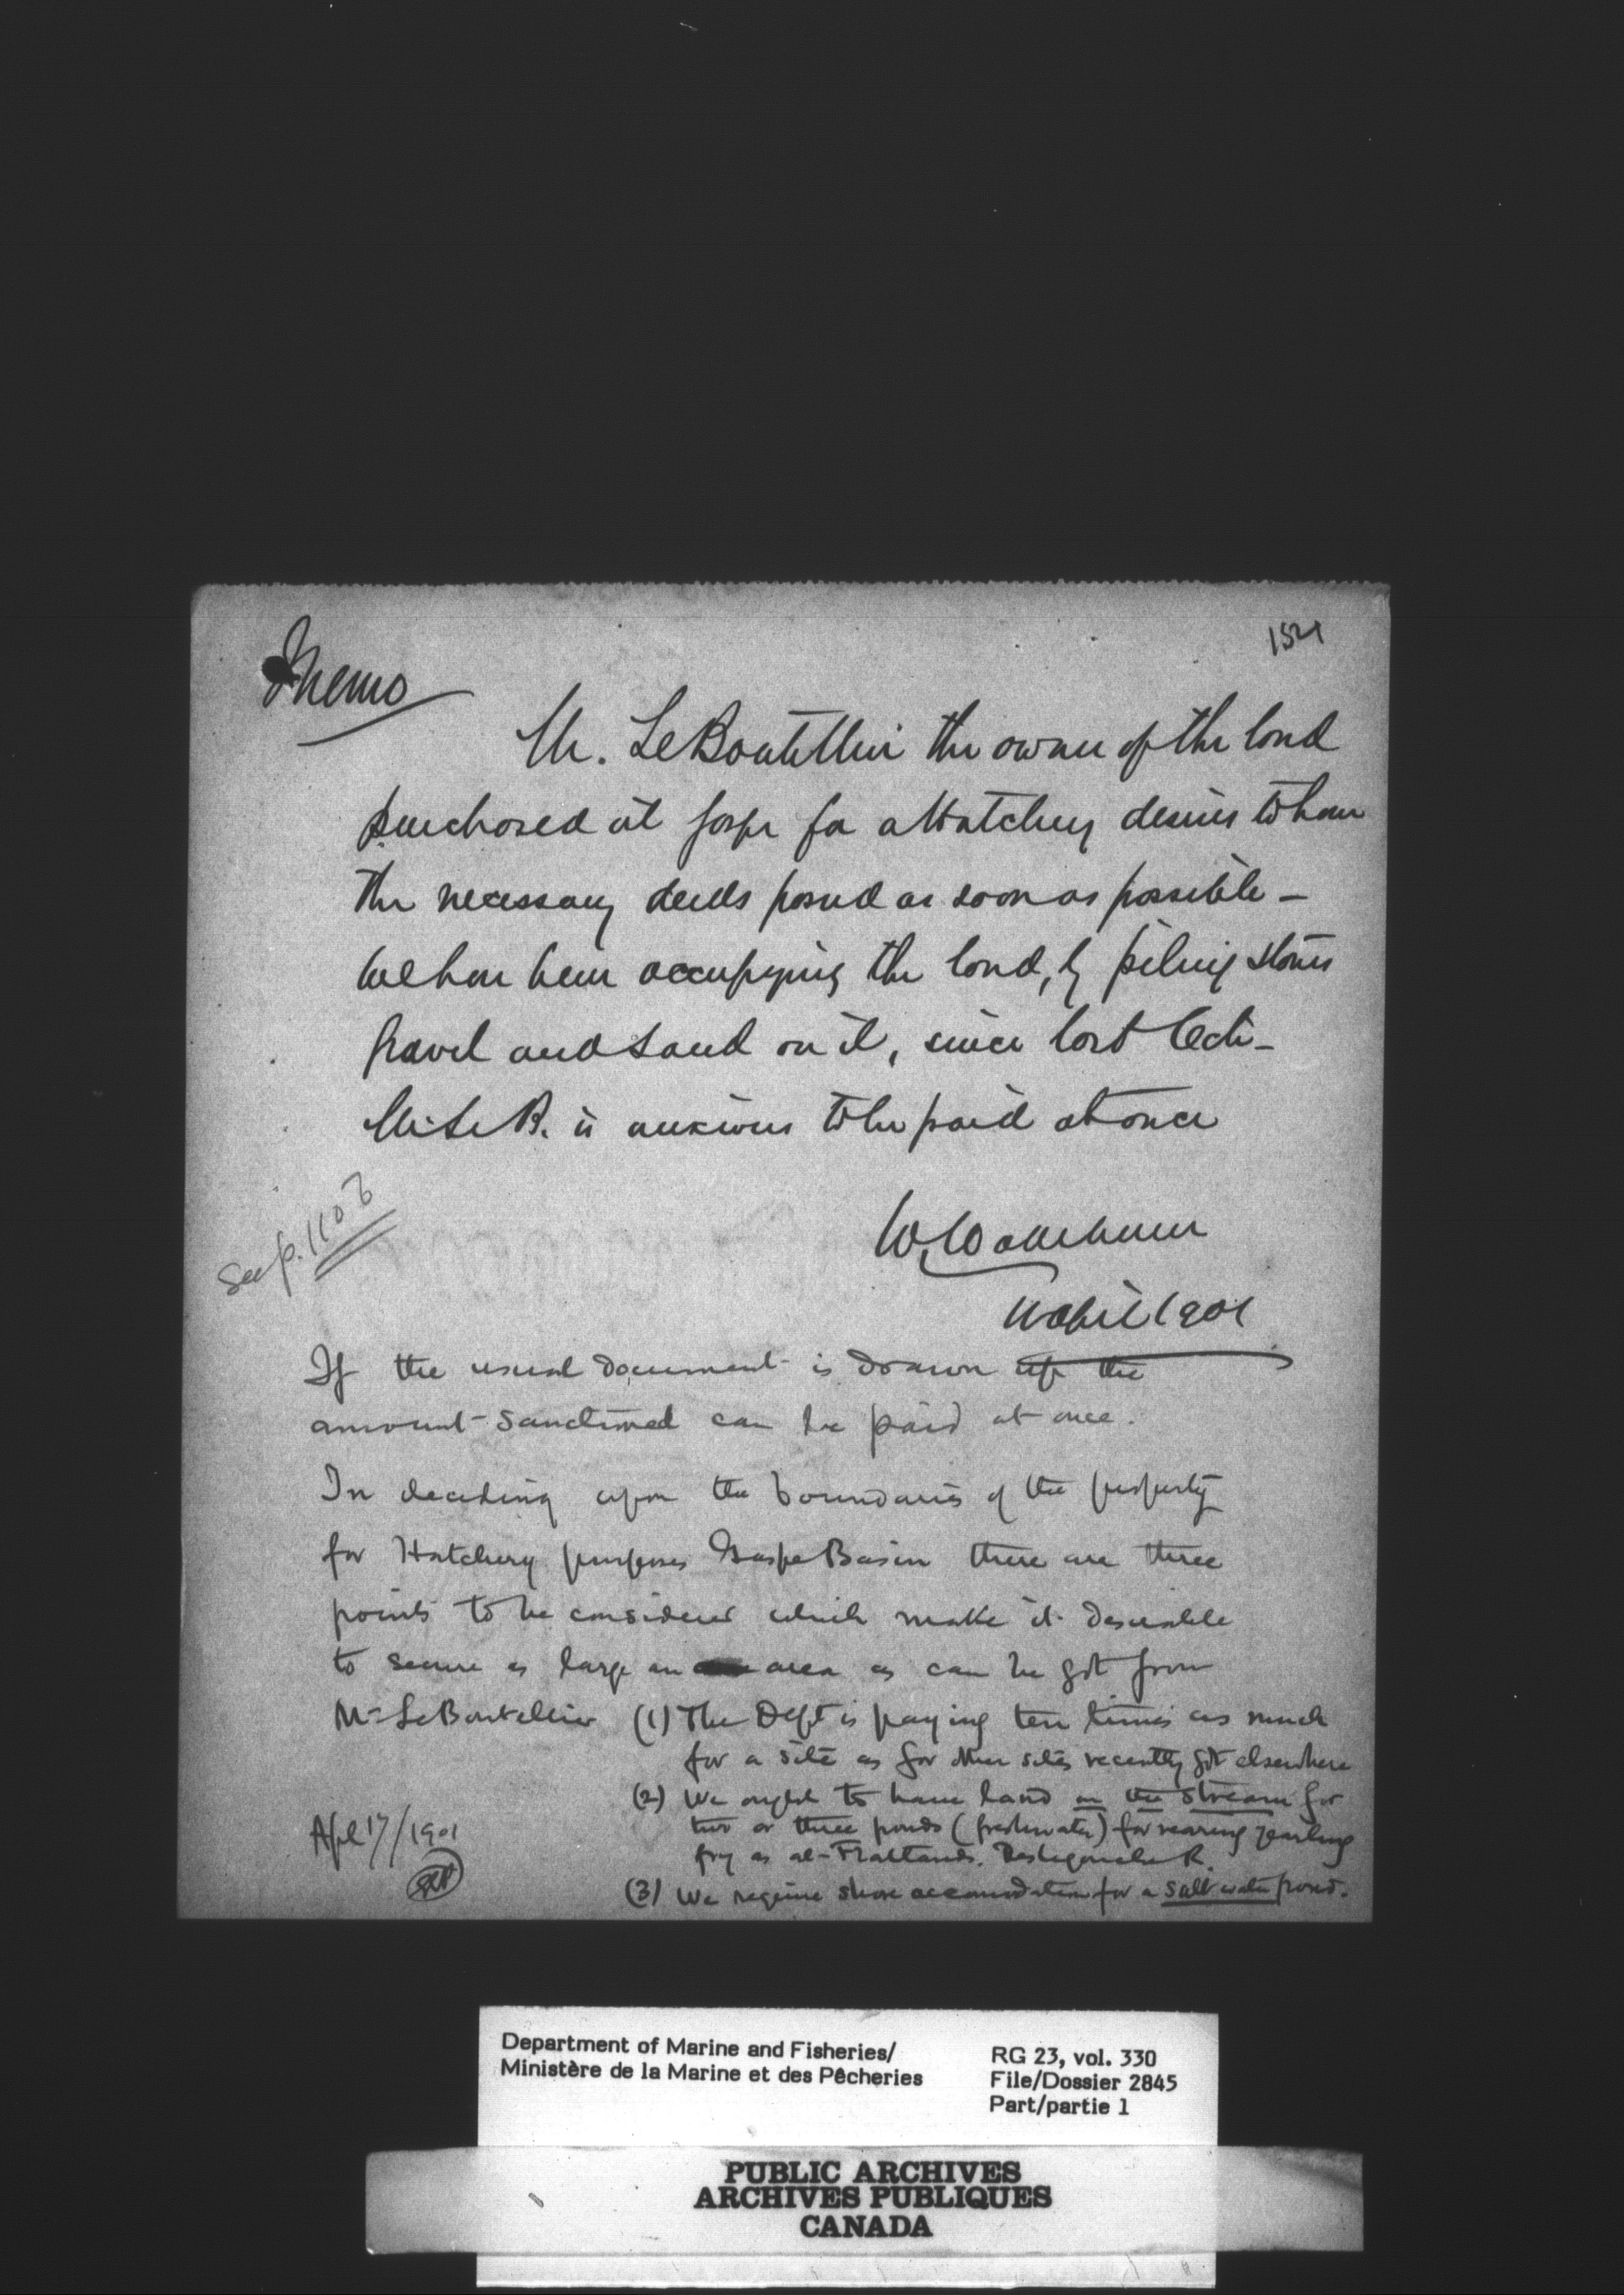 Memo
1521
Mr. LeBoutillier the owner of the land
purchased at Gaspe for a Hatchery desires to have
the necessary deeds passed as soon as possible –
We have been occupying the land, by piling stones
gravel and sand on it, since last Octr –
Mr. Le B. is anxious to be paid at once
See p. 1108
W.
11 April 1901
If the usual document is drawn up the
amount sanctioned can be paid at once.
In deciding upon the boundaries of the property
for Hatchery purposes Gaspe Basin there are three
points to be considered which make it desirable
to secure as large an area as can be got from
Mr LeBoutellier (1) The Dept is paying ten times as much
for a site as for other sites recently got elsewhere
(2) We ought to have land on the stream for
two or three ponds (freshwater) for rearing yearling
fry as at Flatlands. Restigouche R.
(3) We require shore accomodation for a salt water pond.
Apl 17/1901
Department of Marine and Fisheries/
Ministère de la Marine et des Pêcheries
RG 23, vol. 330
File/Dossier 2845
Part/partie 1
PUBLIC ARCHIVES
ARCHIVES PUBLIQUES
CANADA